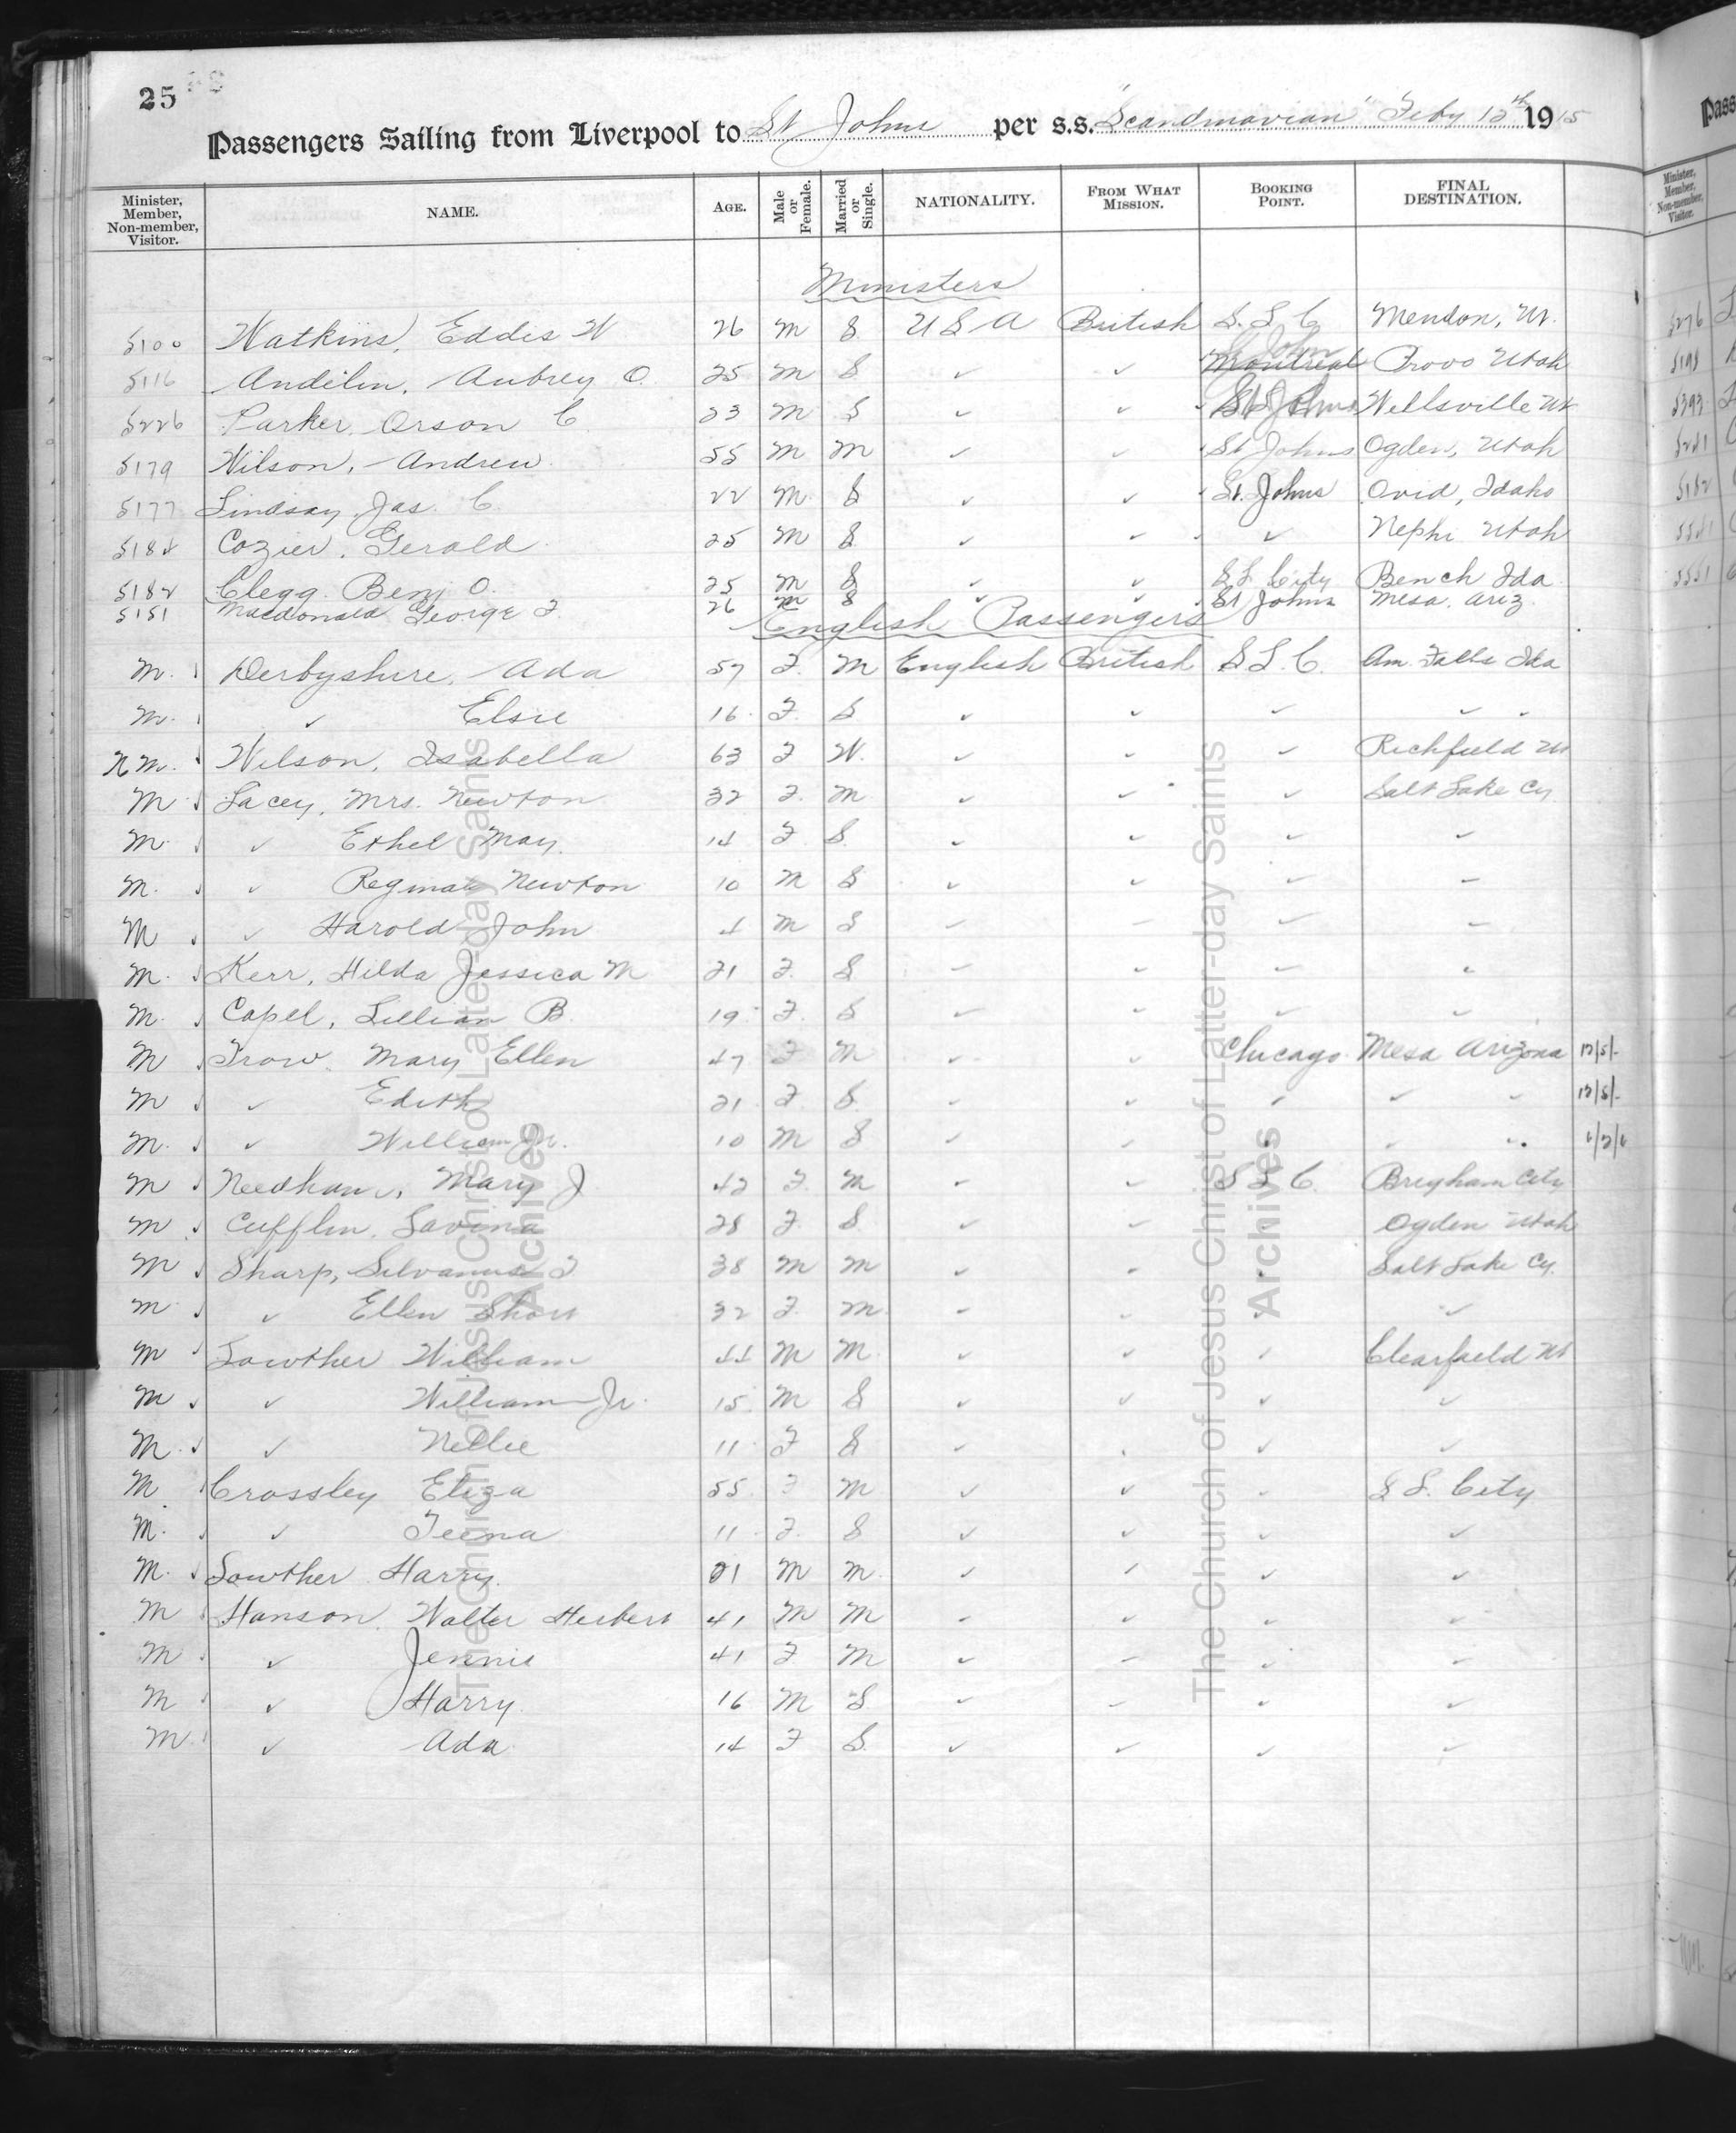 25
Passengers Sailing from Liverpool to St Johns per s.s. "Scandinavian" Feby 12th 1915
Minister, Member, Non-member, Visitor. NAME. AGE. Male or Female. Married or Single. NATIONALITY. FROM WHAT MISSION. BOOKING POINT. FINAL DESTINATION.
Ministers
5100 Watkins, Eddis W 26 M S. U S A British S. L C Mendon, Ut.
5116 Andelin, Aubrey O. 25 M S ✓ ✓ Montreal St John Provo Utah
5226 Parker, Orson C 23 M S ✓ ✓ St Johns Wellsville Ut
5179 Wilson, Andrew 55 M M ✓ ✓ St Johns Ogden, Utah
5177 Lindsay, Jas. C. 22 M. S ✓ ✓ St. Johns Ovid, Idaho
5184 Cozier, Gerald 25 M S ✓ ✓ ✓ Nephi Utah
5182 Clegg, Benj O. 25 M S ✓ ✓ S L City Bench Ida
5151 Macdonald George F. 26 M S ✓ ✓ St Johns Mesa. Ariz.
English Passengers
M. Derbyshire, Ada 57 F. M English British S L C. Am. Falls Ida
M. ✓ Elsie 16 F. S ✓ ✓ ✓ ✓
N M. Wilson, Isabella 63 F W. ✓ ✓ ✓ Richfield Ut
M Lacey, Mrs. Newton 32 F. M ✓ ✓ ✓ Salt Lake Cy.
M. ✓ Ethel May. 14 F S. ✓ ✓ ✓ ✓
M. ✓ Reginald Newton 10 M S ✓ ✓ ✓ ✓
M ✓ Harold John 4 M S ✓ ✓ ✓ ✓
M. Kerr, Hilda Jessica M 21 F. S ✓ ✓ ✓ ✓
M. Capel, Lillian B. 19 F. S ✓ ✓ ✓ ✓
M Trow. Mary Ellen 47 F M ✓ ✓ Chicago. Mesa Arizona 12/5/-
M ✓ Edith 21 F. S. ✓ ✓ ✓ ✓ 12/5/-
M. ✓ William Jr. 10 M S ✓ ✓ ✓ 6/2/6
M Needham, Mary J 42 F. M ✓ ✓ S L C. Brigham City
M Cufflin, Lavina 28 F. S. ✓ ✓ Ogden Utah
M Sharp, Silvanus 38 M M ✓ ✓ Salt Lake Cy.
M ✓ Ellen Short 32 F. M. ✓ ✓ ✓ ✓
M Lowther William 44 M M. ✓ ✓ ✓ Clearfield Ut
M ✓ William Jr. 15 M S ✓ ✓ ✓ ✓
M. ✓ Nellie 11 F S ✓ ✓ ✓
M Crossley Eliza 55 F M ✓ ✓ S L. City
M. ✓ Teena 11 F. S ✓ ✓ ✓ ✓
M. Lowther Harry. 21 M M. ✓ ✓ ✓ ✓
M Hanson, Walter Herbert 41 M M ✓ ✓ ✓ ✓
M ✓ Jennie 41 F M ✓ ✓ ✓ ✓
M ✓ Harry 16 M S ✓ ✓ ✓ ✓
M ✓ Ada 14 F S. ✓ ✓ ✓ ✓
The Church of Jesus Christ of Latter-day Saints
Archives
The Church of Jesus Christ of Latter-day Saints
Archives
Pass
Minister, Member, Non-member, Visitor.